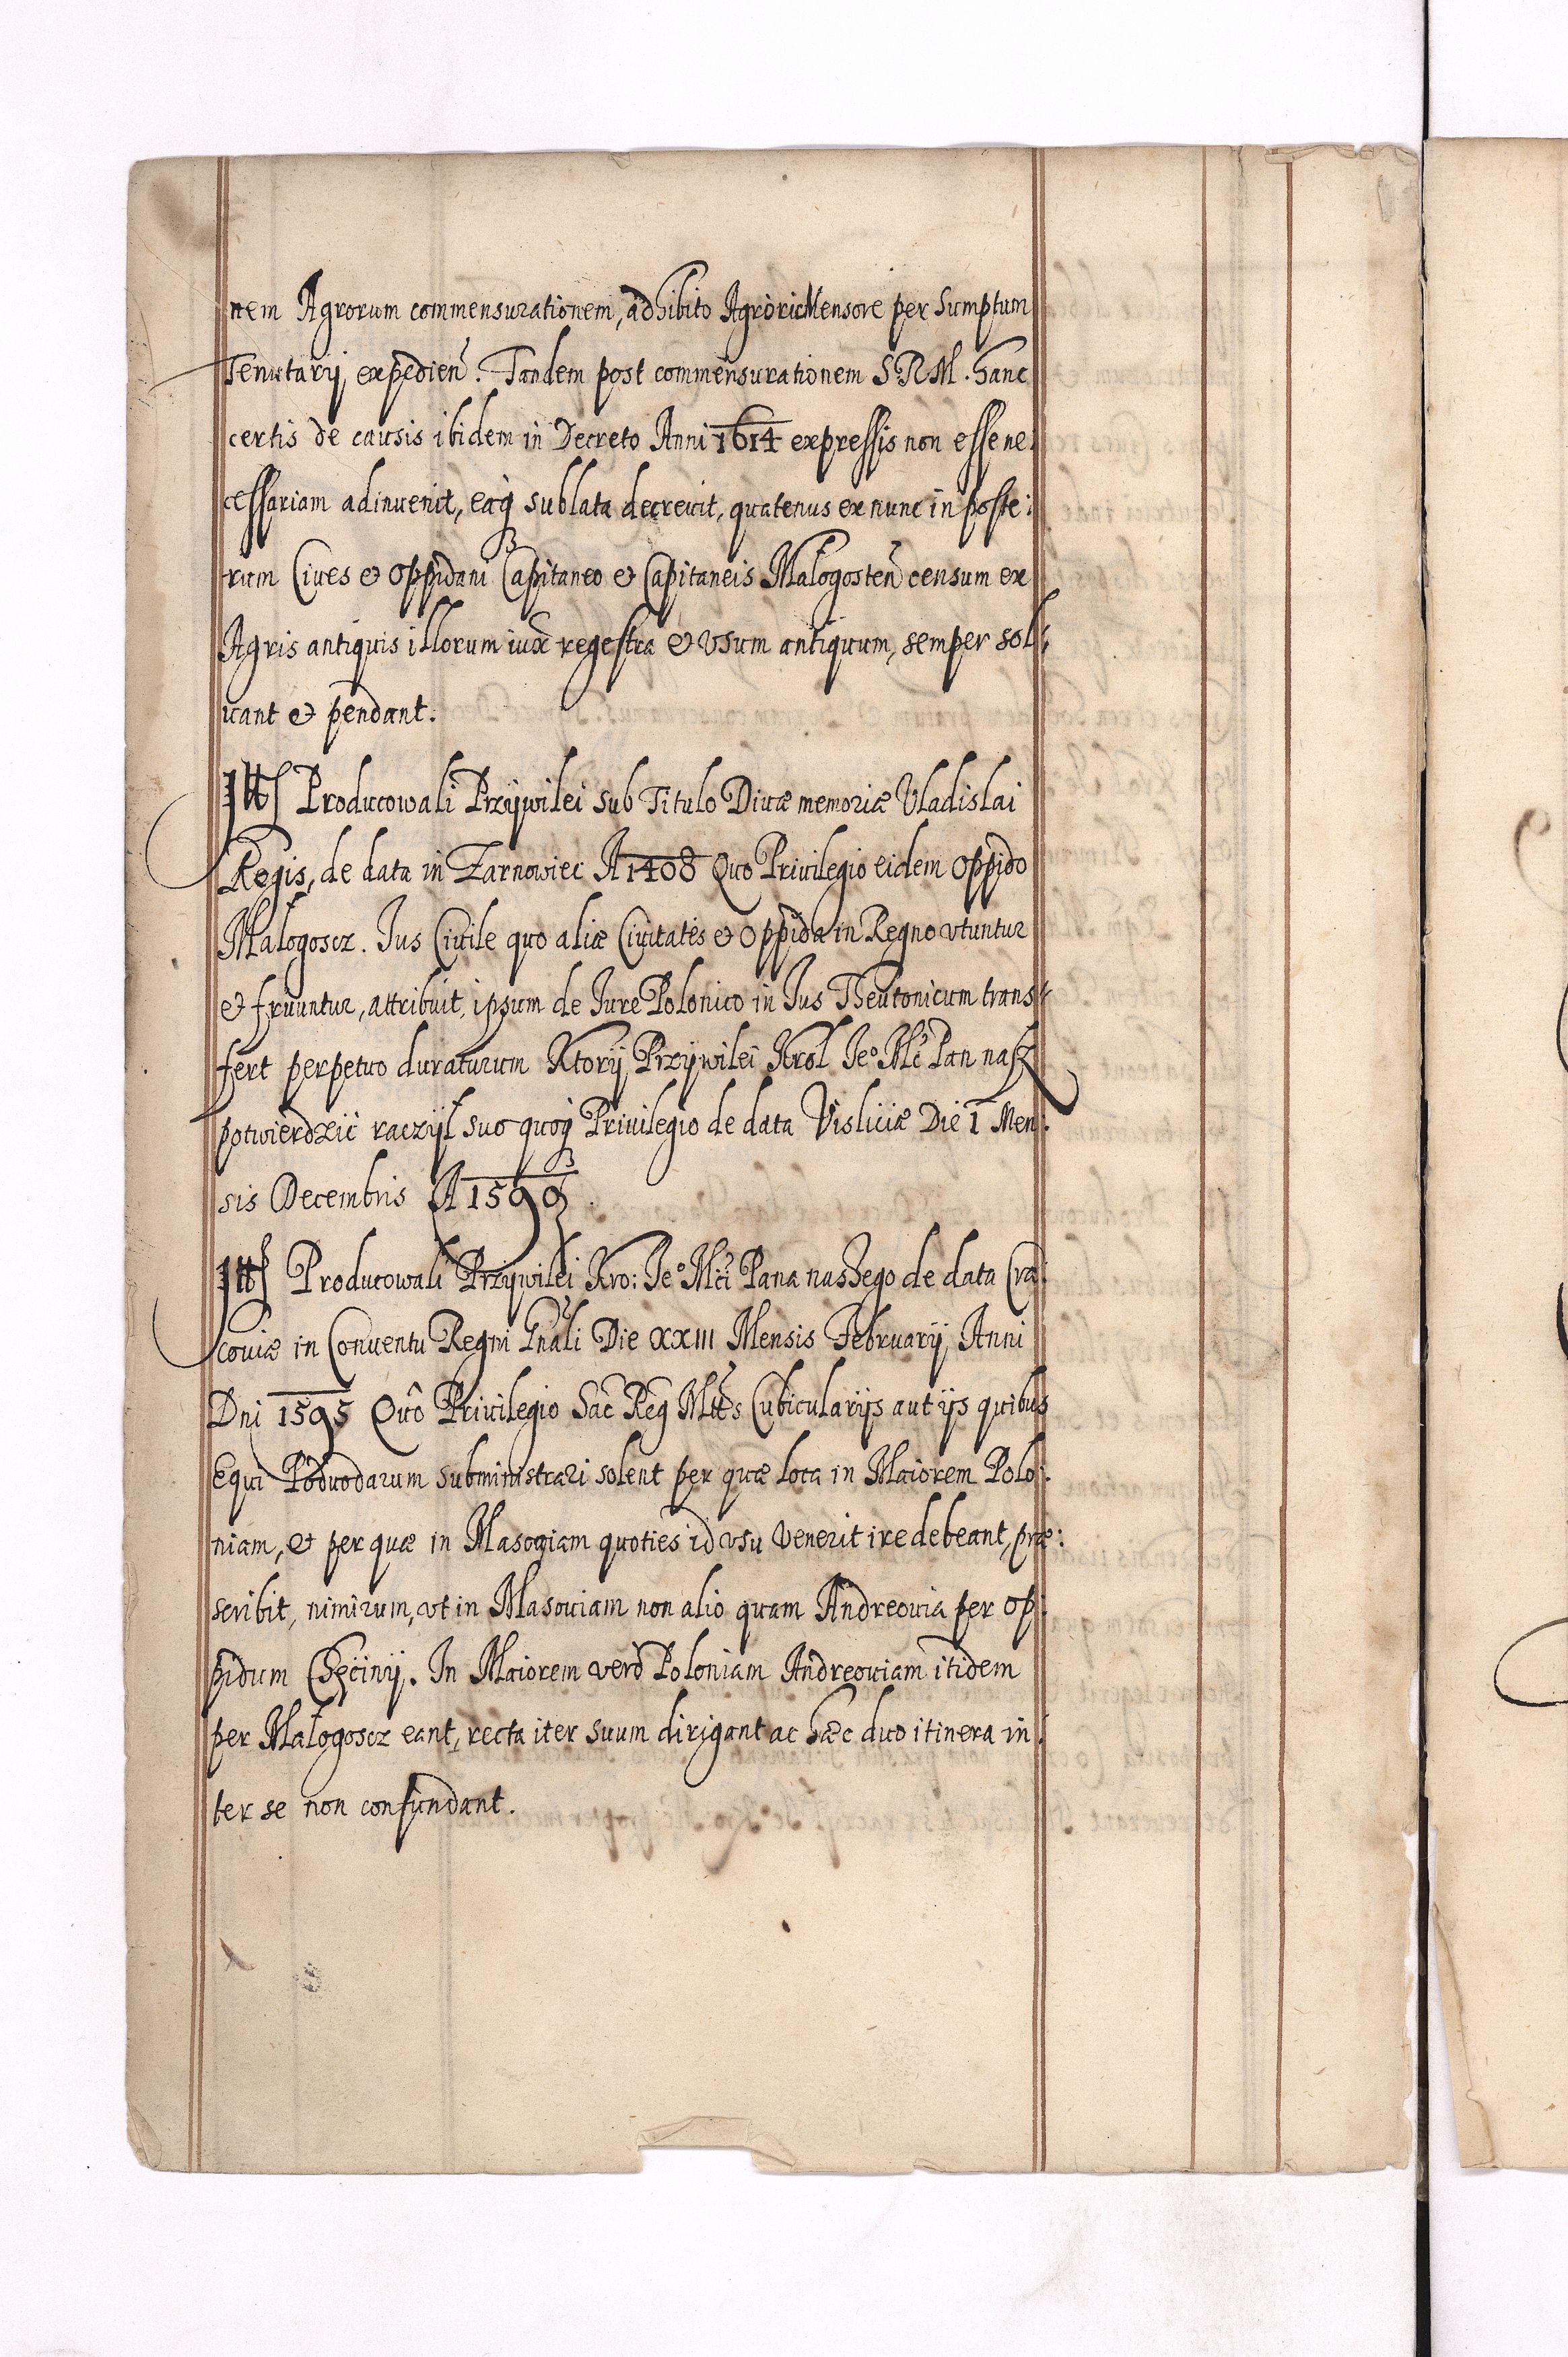 nem Agrorum commensurationem, adhibito Agroru Mensore per Sumptum
Tenutarij, expedien. Tandem post commensurationem S.R.M. hanc
certis de causis ibidem in Decreto Anni 1614 expressis non esse ne:
cessariam adinuenit, eaq sublata decreuit, quatenus ex nunc in poste:
rum Ciues et Oppidani Capitaneo et Capitaneis Małogosten censum ex
Agris antiquis illorum iux regestra et vsum antiquum, semper sol:
uant et pendant.
Itt Producowali Przywilei sub Titulo Diuæ memoriæ Vladislai
Regis, de data in Żarnowiec A 1408 Quo Priuilegio eidem Oppido
Małogoscz. Jus Ciuile quo aliæ Ciuitates et Oppida in Regno vtuntur
et fruuntur, attribuit, ipsum de Jure Polonico in Jus Theutonicum trans:
fert perpetuo duraturum Ktorÿ Przÿwilei Krol Je° Mć Pan nasz
potwierdzić raczÿł suo quoq Priuilegio de data Visliciæ Die 1 Men:
sis Decembris A 1599.
Itt Producowali Przywilei Kro: Je° Mći Pana naszego de data Cra:
couiæ in Conuentu Regni Gnali Die XXIII Mensis Februarij Anni
Dni 1595 Quô Priuilegio Sac Reg Mttis Cubicularijs aut ijs quibus
Equi Podvodarum subministrari solent per quæ loca in Maiorem Polo:
niam, et per quæ in Masouiam quoties id vsu venerit ire debeant, præ:
scribit, nimirum, vt in Masouiam non alio quam Andreouia per op:
pidum Chęcinÿ. In Maiorem verò Poloniam Andreouiam itidem
per Małogoscz eant, recta iter suum dirigant ac hæc duo itinera in:
ter se non confundant.